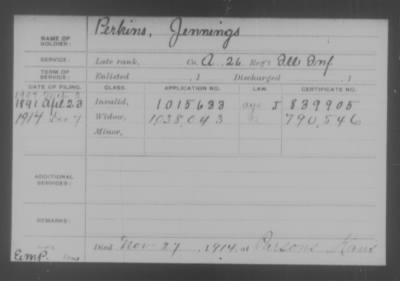 NAME OF SOLDIER: Perkins, Jennings
SERVICE: Late rank, Co. A. 26 Reg't Ill Inf
TERM OF SERVICE: Enlisted , 1 Discharged , 1
DATE OF FILING. CLASS. APPLICATION NO. LAW. CERTIFICATE NO.
1891 Apl. 23 Invalid, 1015633 839905
1914 Dec 7 Widow, 1038,043 790,546
Minor,
ADDITIONAL SERVICES:
REMARKS:
Died Nov 27, 1914, at Parsons Kans